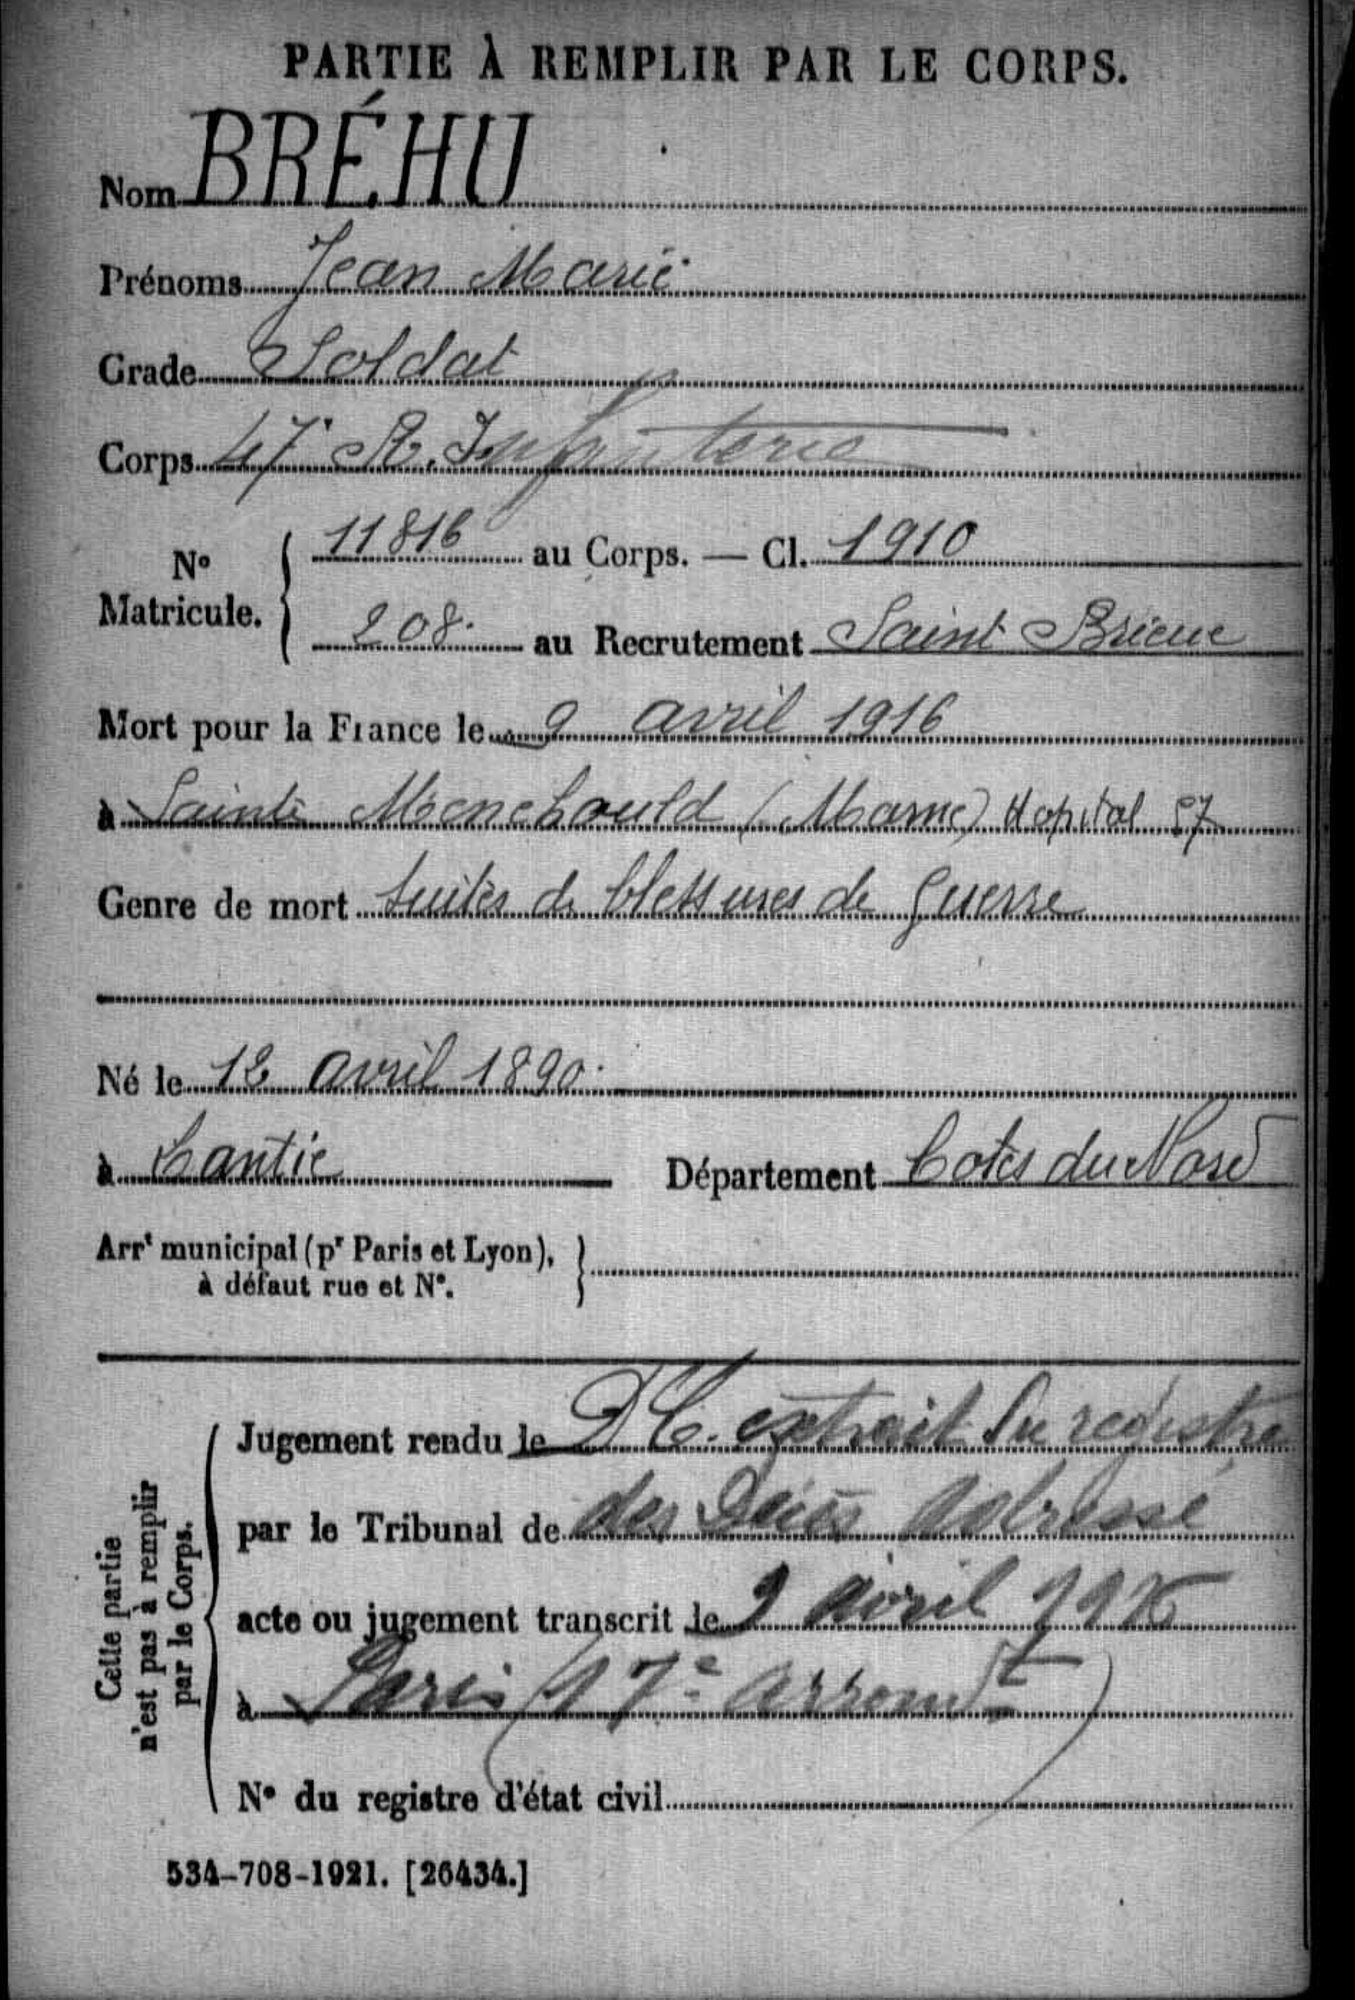 PARTIE À REMPLIR PAR LE CORPS.
Nom BRÉHU
Prénoms Jean Marie
Grade Soldat
Corps 47e R. Infanterie
No Matricule. 11816 au Corps. — Cl. 1910
208. au Recrutement Saint Brieuc
Mort pour la France le 9 avril 1916
à Sainte Menehould (Marne) Hopital 57
Genre de mort suites de blessures de guerre
Né le 12 avril 1890
à Lantic Département Cotes du Nord
Arrt municipal (pr Paris et Lyon),
à défaut rue et No.
Cette partie
n'est pas à remplir
par le Corps.
Jugement rendu le D C. extrait du registre
par le Tribunal de des Décès adressé
acte ou jugement transcrit le 9 avril
à Paris (17e arrondt)
No du registre d'état civil
534-708-1921. [26434.]